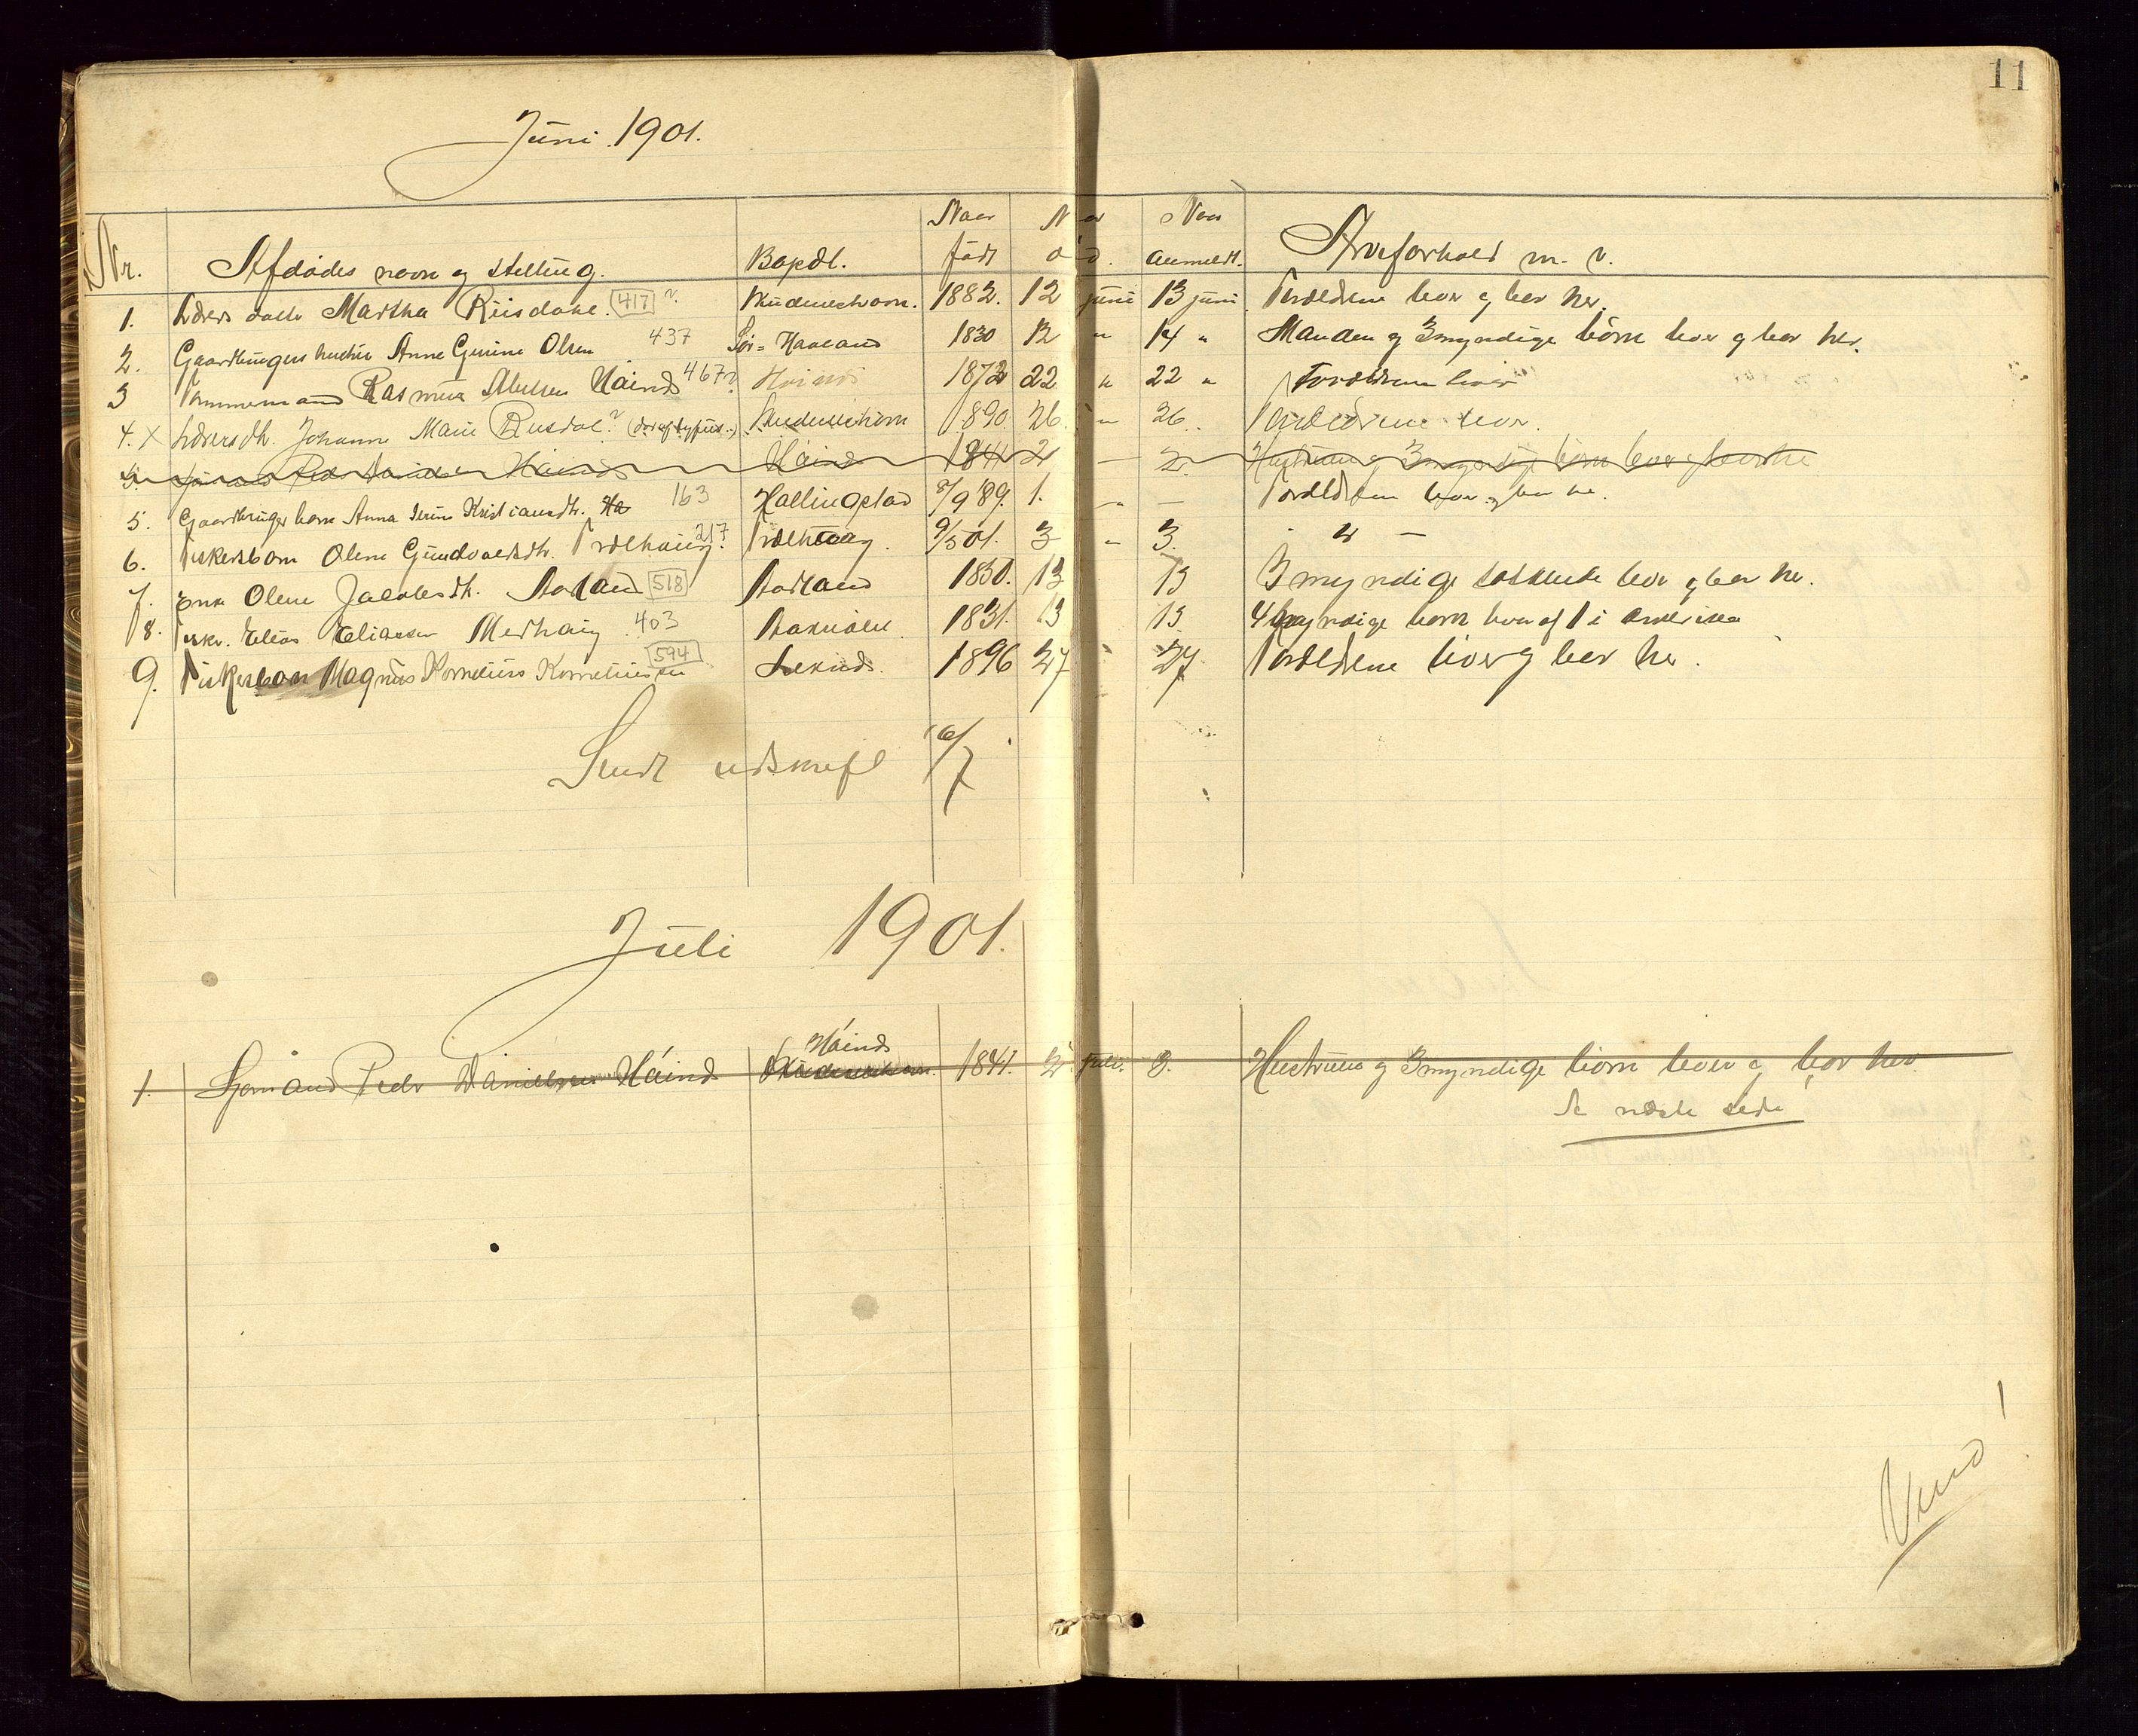 11
Juni 1901.
Nr. Afdødes navn og stilling. Bopæl. Naar født Naar død. Naar anmeldt. Arveforhold m. v.
1. Lærers datter Martha Riisdahl. 417 ? Skudeneshavn. 1882. 12 juni 13 juni Forældrene lever og bor her.
2. Gaardbrugers hustru Anne Gurine Olsen 437 Sør-Haaland 1830 12 " 14 " Manden og 3 myndige børn lever og bor her.
3 Tømmermand Rasmus Háinds 467? 1872 22 " 22 " Forældrene lever
4. X Lærersdtr. Johanne Marie Riisdal? (død af tyfus.) Skudeneshavn 1890. 26. " 26. Forældrene lever.
5. Háinds Háinds 1841 2 — 2. Hustruen og 3 myndige børn lever og bor her
5. Gaardbruger barn Anna Serine Kristiansdtr. Ha 163 Hallingstad 8/9 89. 1. " — Forældrene lever og bor her.
6. Fiskersbarn Olene Gundvaldsdtr. Trælhaug. 217? Trælhaug. 9/5 01. 3 " 3. " —
7. Enke Olene Jakobsdtr. Aadland 518 Aadland 1830. 13 13 3 myndige søskende lever og bor her.
8. Fisker. Elias Eliassen Medhaug 403 1831. 13 13 4 myndige børn hvoraf 1 i Amerika
9. Fiskersbarn Magnus Kornelius Korneliussen 594 1896 27 " 27 Forældrene lever og bor her.
Sendt udskrift 6/7
Juli 1901.
Háinds
1. Sjømand Peder Danielsen Háinds Skudeneshavn. 1841. 2 juli. 3. Hustruen og 3 myndige børn lever og bor her
Se næste side
Vend!